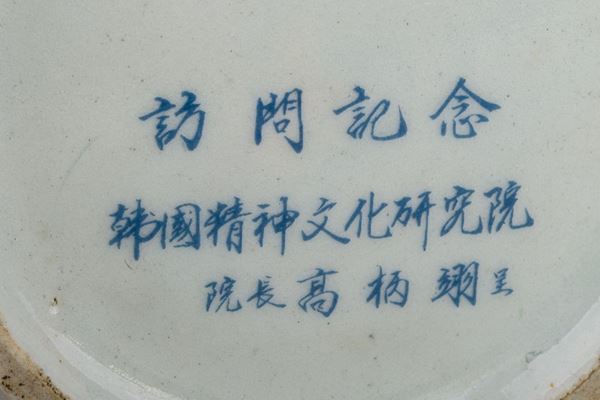 訪問記念
韩國精神文化研究院
院長高柄翊呈